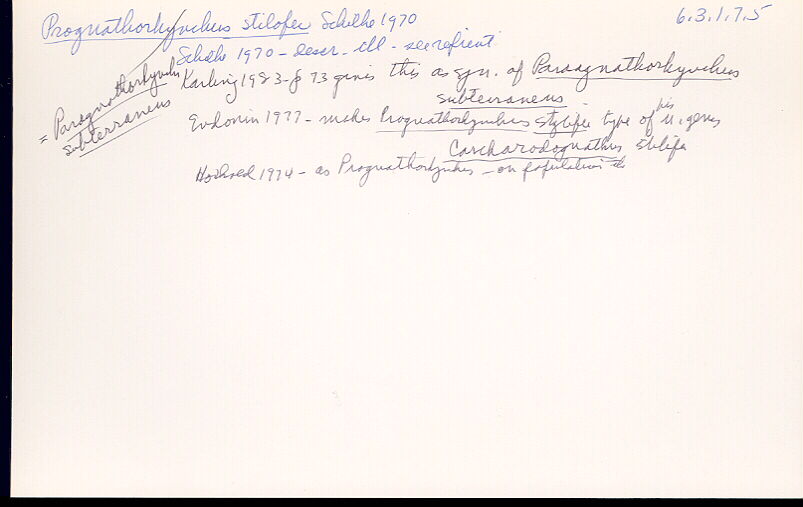 Prognathorhynchus stilofer Schilke 1970
6.3.1.7.5
Schilke 1970 - descr - ill - see refient
= Paragnathorhynchus subterraneus
Karling 1983 - p 73 gives this as syn. of Paragnathorhynchus
subterraneus
Evdonin 1977 - makes Prognathorhynchus stylifer type of his n. genus
Carcharodognathus stilifer
1974 - as Prognathorhynchus - on population